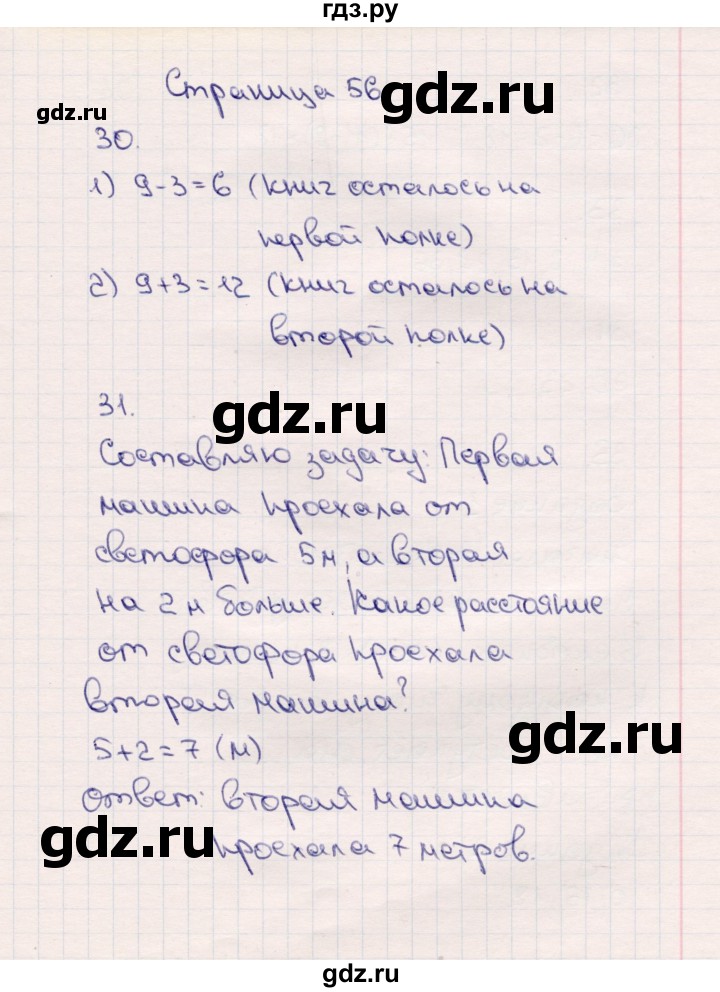 гдз.ру
Страница 56
gdz.ru
gdz.ru
30.
1) 9-3=6 (книг осталось на
первой полке)
2) 9+3=12 (книг осталось на
второй полке)
31.
gdz.ru
Составляю задачу: Первая
машина проехала от
светофора 5м, а вторая
на 2 м больше. Какое расстояние
от светофора проехала
вторая машина?
gdz.ru
5+2=7 (м)
Ответ: вторая машина
gdz.ru
проехала 7 метров.
gdz.ru